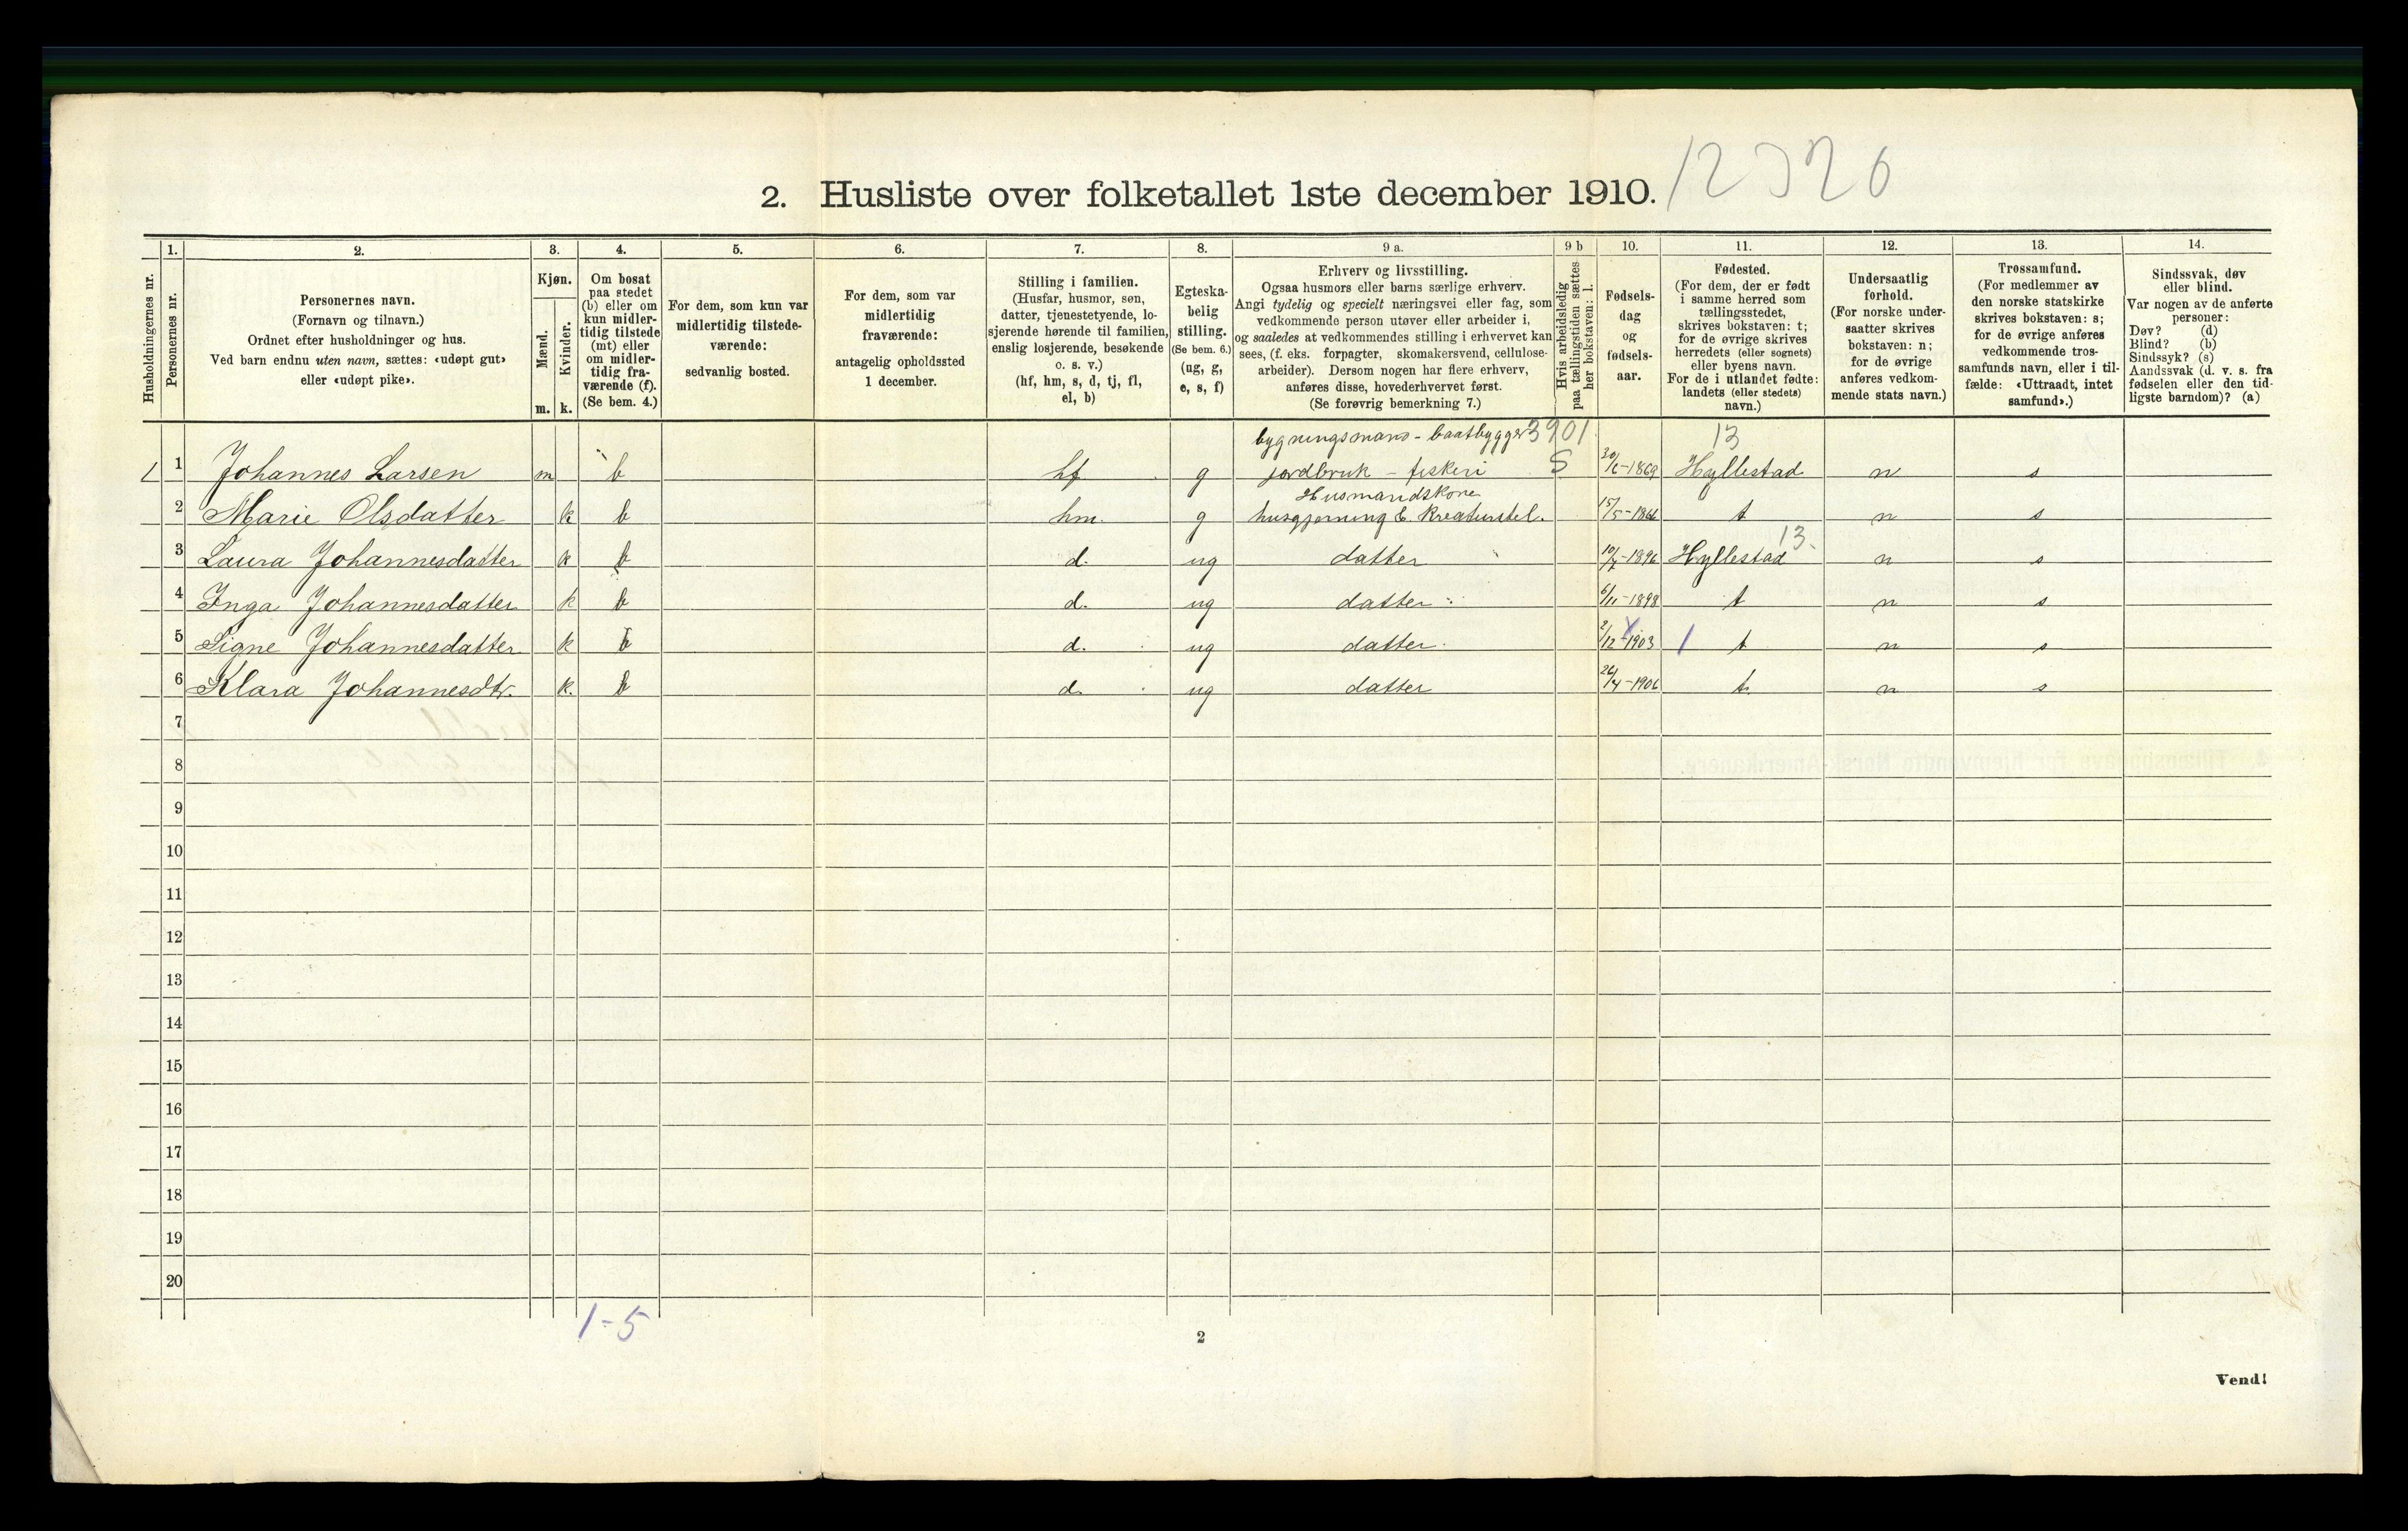 2. Husliste over folketallet 1ste december 1910. 12326
Husholdningernes nr.
1. Personernes nr.
2. Personernes navn.
(Fornavn og tilnavn.)
Ordnet efter husholdninger og hus.
Ved barn endnu uten navn, sættes: «udøpt gut»
eller «udøpt pike».
3. Kjøn.
Mænd. Kvinder.
m. k.
4. Om bosat
paa stedet
(b) eller om
kun midler-
tidig tilstede
(mt) eller
om midler-
tidig fra-
værende (f).
(Se bem. 4.)
5. For dem, som kun var
midlertidig tilstede-
værende:
sedvanlig bosted.
6. For dem, som var
midlertidig
fraværende:
antagelig opholdssted
1 december.
7. Stilling i familien.
(Husfar, husmor, søn,
datter, tjenestetyende, lo-
sjerende hørende til familien,
enslig losjerende, besøkende
o. s. v.)
(hf, hm, s, d, tj, fl,
el, b)
8. Egteska-
belig
stilling.
(Se bem. 6.)
(ug, g,
e, s, f)
9 a. Erhverv og livsstilling.
Ogsaa husmors eller barns særlige erhverv.
Angi tydelig og specielt næringsvei eller fag, som
vedkommende person utøver eller arbeider i,
og saaledes at vedkommendes stilling i erhvervet kan
sees, (f. eks. forpagter, skomakersvend, cellulose-
arbeider). Dersom nogen har flere erhverv,
anføres disse, hovederhvervet først.
(Se forøvrig bemerkning 7.)
9 b Hvis arbeidsledig
paa tællingstiden sættes
her bokstaven: l.
10. Fødsels-
dag
og
fødsels-
aar.
11. Fødested.
(For dem, der er født
i samme herred som
tællingsstedet,
skrives bokstaven: t;
for de øvrige skrives
herredets (eller sognets)
eller byens navn.
For de i utlandet fødte:
landets (eller stedets)
navn.)
12. Undersaatlig
forhold.
(For norske under-
saatter skrives
bokstaven: n;
for de øvrige
anføres vedkom-
mende stats navn.)
13. Trossamfund.
(For medlemmer av
den norske statskirke
skrives bokstaven: s;
for de øvrige anføres
vedkommende tros-
samfunds navn, eller i til-
fælde: «Uttraadt, intet
samfund».)
14. Sindssvak, døv
eller blind.
Var nogen av de anførte
personer:
Døv? (d)
Blind? (b)
Sindssyk? (s)
Aandssvak (d. v. s. fra
fødselen eller den tid-
ligste barndom)? (a)
bygningsmand - baatbygger 3901 13
1 1 Johannes Larsen m b hf g jordbruk - fiskeri S 30/6-1869 Hyllestad n s
Husmandskone
2 Marie Olsdatter k b hm. g husgjerning & Kreaturstel. 15/5-1866 t n s
13.
3 Laura Johannesdatter k b d. ug datter 10/7-1896 Hyllestad n s
4 Inga Johannesdatter k b d. ug datter 6/11-1898 t n s
5 Signe Johannesdatter k b d. ug datter 2/12-1903 t n s
6 Klara Johannesdtr. k. b d. ug datter 26/4-1906 t. n s
7
8
9
10
11
12
13
14
15
16
17
18
19
20
1-5
2
Vend!